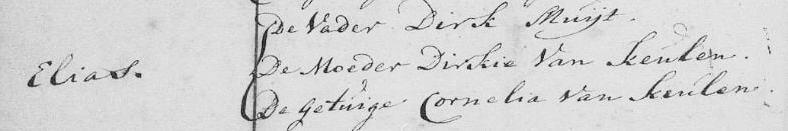 De Vader Dirk Muijt.
Elias. De Moeder Dirkie Van Keulen.
De getuige Cornelia van Keulen.